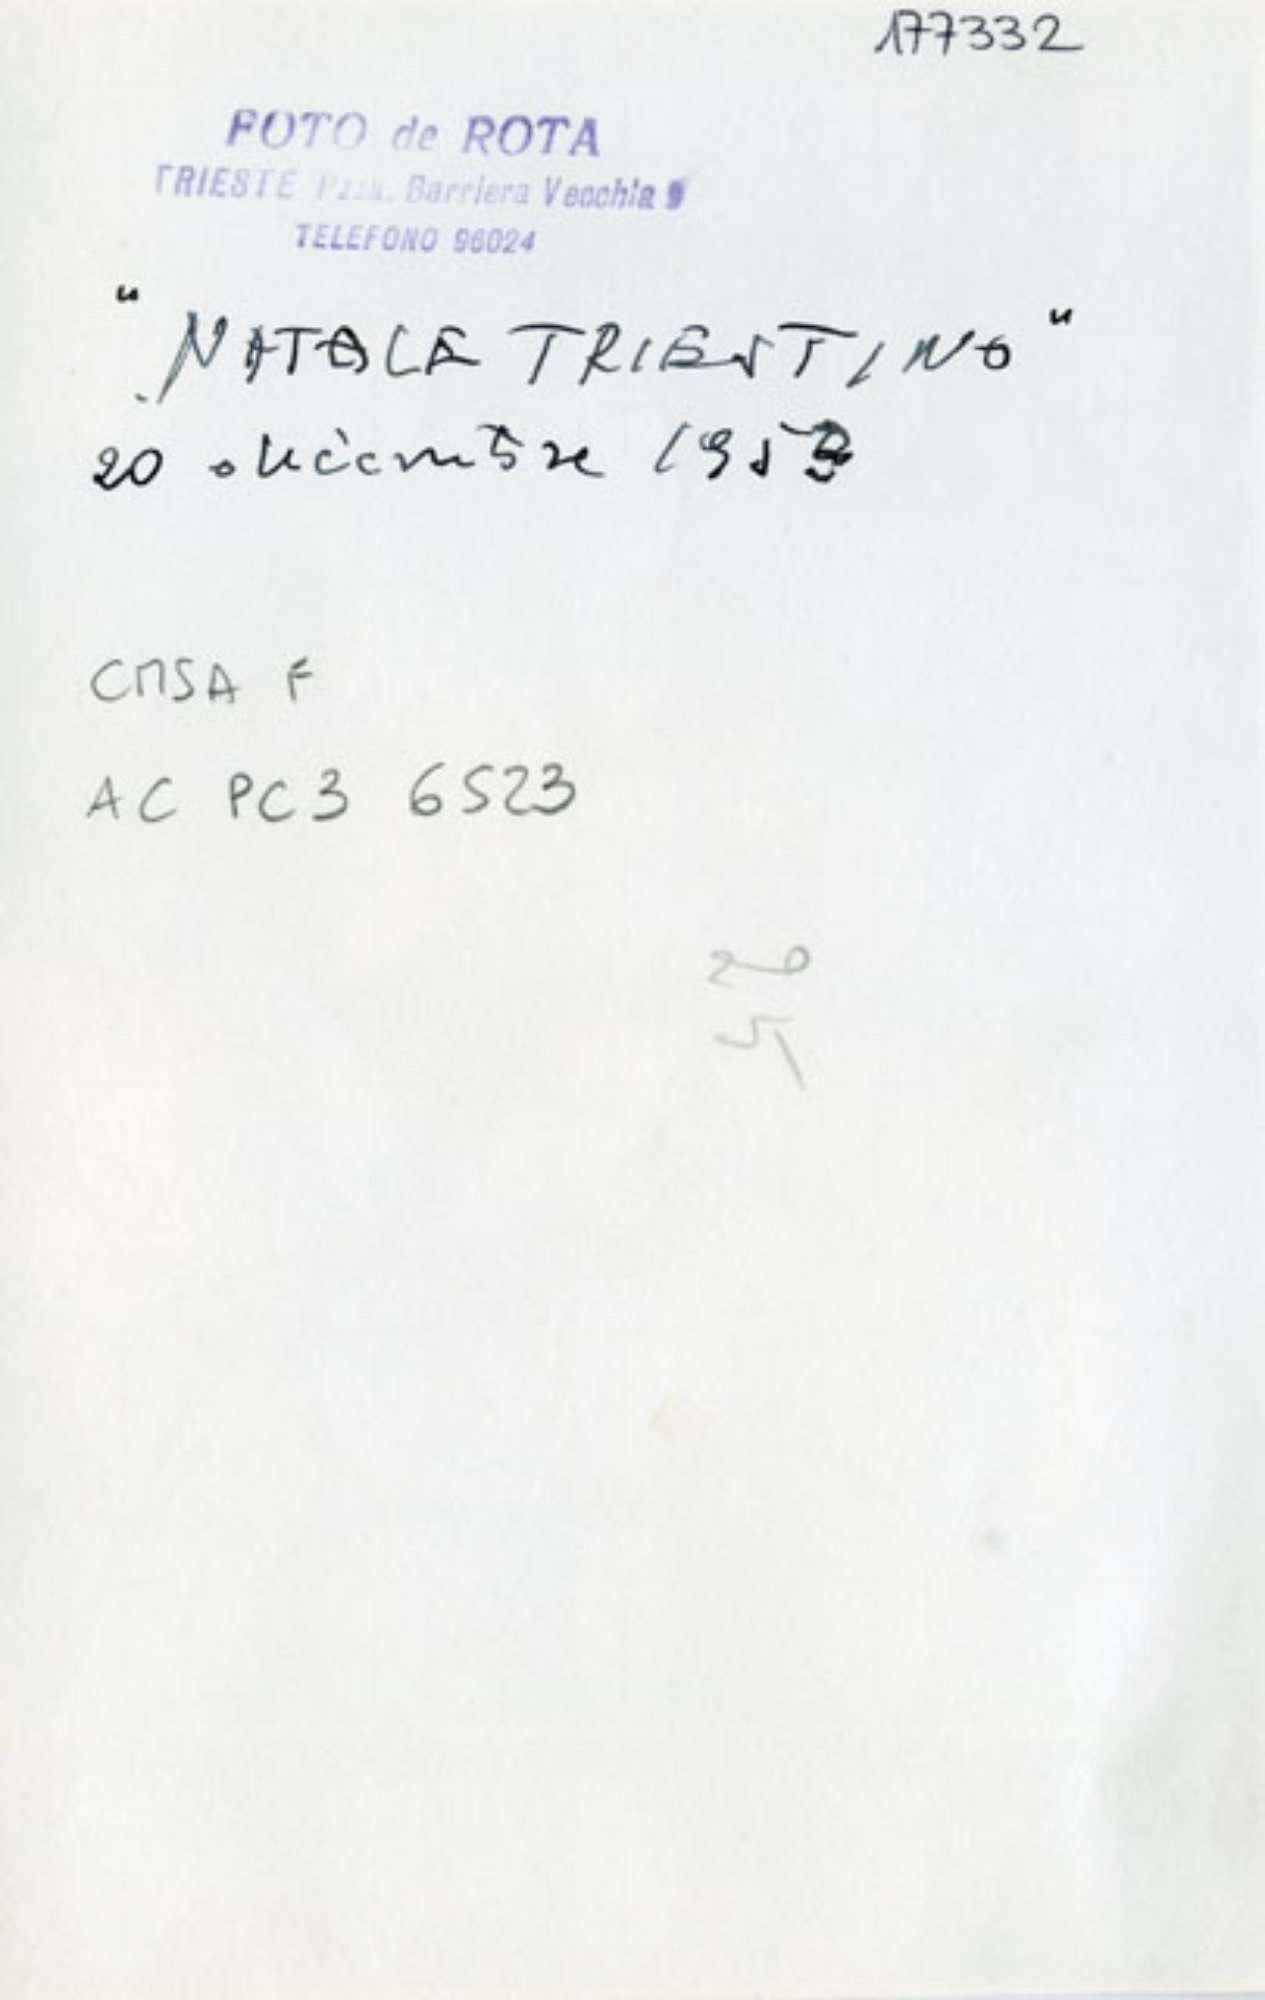 177332
FOTO de ROTA
TRIESTE Pzza. Barriera Vecchia 9
TELEFONO 96024
"NATALE TRIESTINO"
20 dicembre 1953
CMSA F
AC PC3 6523